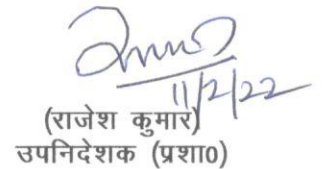 11/2/22
(राजेश कुमार)
उपनिदेशक (प्रशा0)